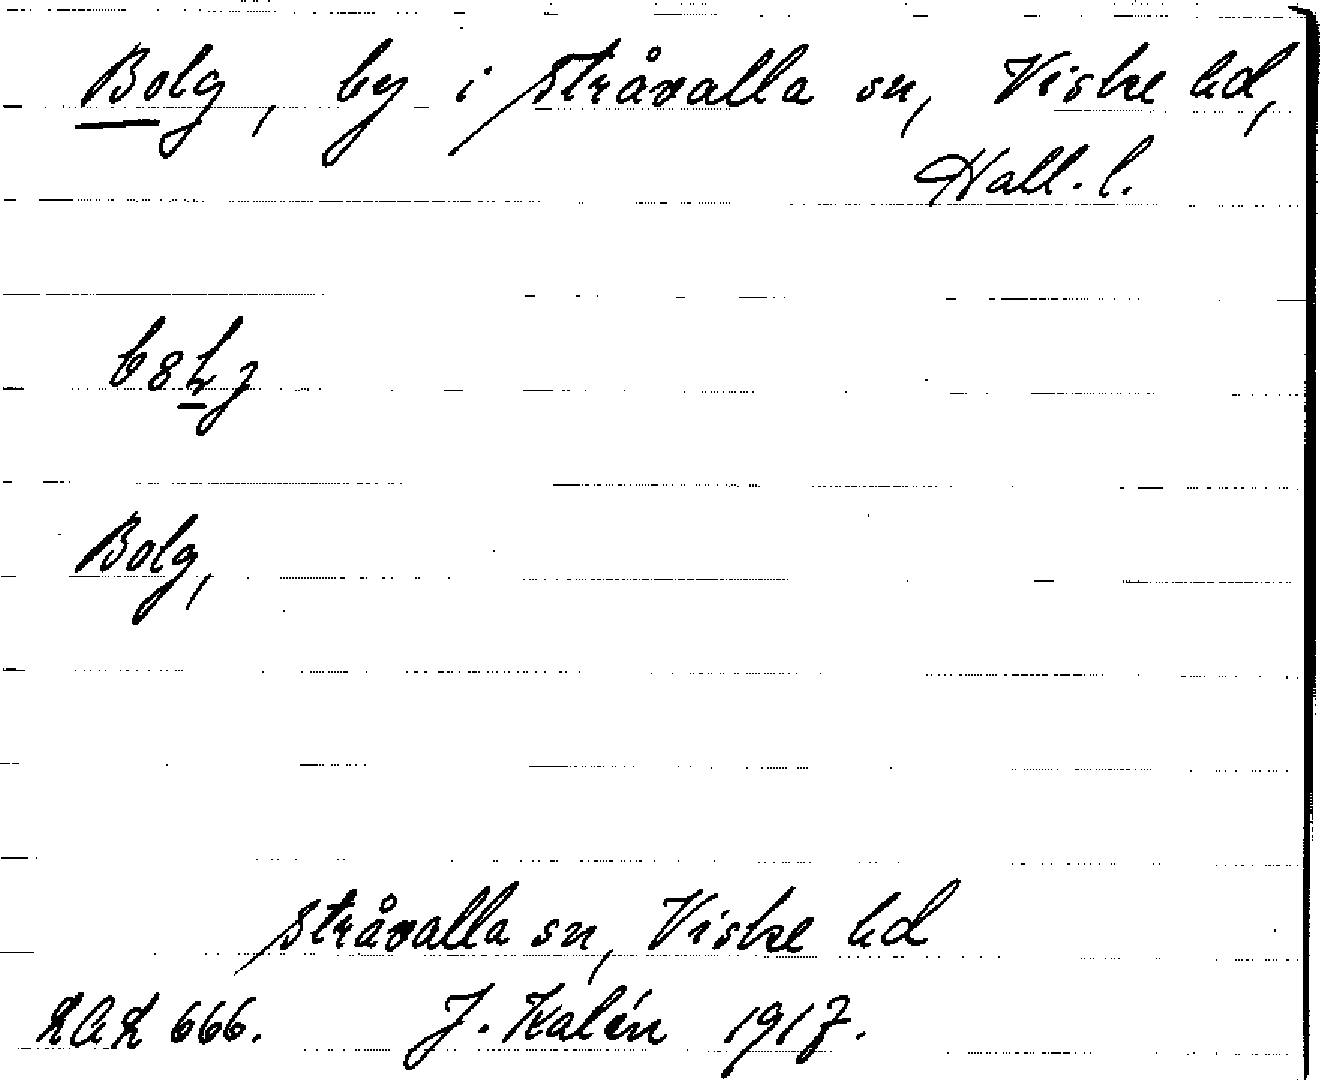 Bolg, by i Stråvalla sn, Viske hd,
Hall. l.
Bolg,
Stråvalla sn, Viske hd
666. J. Kalén 1917.